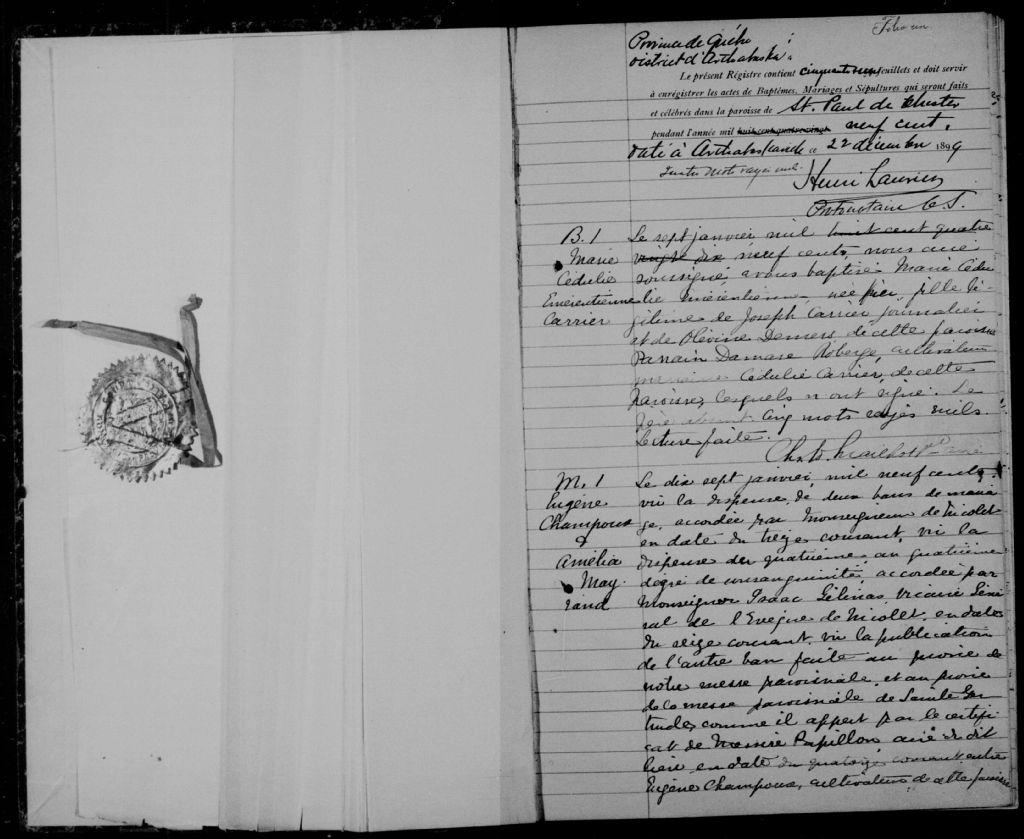 Folio un.
Province de Québec
District d'Arthabaska
Le présent Régistre contient cinquante neuf feuillets et doit servir
à enrégistrer les actes de Baptêmes, Mariages et Sépultures qui seront faits
et célébrés dans la paroisse de St. Paul de Chester
pendant l'année mil huit cent quatre vingt neuf cent.
Daté à Arthabaska ce 22 décembre 1899
Quatre mots rayés nuls.
Henri Laurier
Protonotaire C. S.
B. 1
Marie
Cédulie
Emérentienne
Carrier
Le sept janvier mil huit cent quatre
vingt dix neuf cent, nous curé
soussigné, avons baptisé Marie Cédu
lie Emérentienne, née hier, fille lé-
gitime de Joseph Carrier journalier
et de Olévine Demers de cette paroisse
Parrain Damase Roberge, cultivateur
marraine Cédulie Carrier, de cette
paroisse, lesquels n'ont signé. Le
père absent. Cinq mots rayés nuls.
Lecture faite.
Ch. W. Mailhot Ptre curé
M. 1
Eugène
Champoux
&
Amélia
May
rand
Le dix sept janvier, mil neuf cent,
vu la dispense de deux bans de maria
ge, accordée par Monseigneur de Nicolet
en date du treize courant, vu la
dispense du quatrième au quatrième
degré de consanguinité accordée par
Monseigneur Isaac Gélinas Vicaire Géné
ral de l'Evêque de Nicolet, en date
du seize courant, vu la publication
de l'autre ban faite au prône de
notre messe paroissiale, et au prône
de la messe paroissiale de Sainte Ger
trude, comme il appert par le certifi
cat de Messire Papillon, curé du dit
lieu en date du quatorze courant, entre
Eugène Champoux, cultivateur de cette paroisse